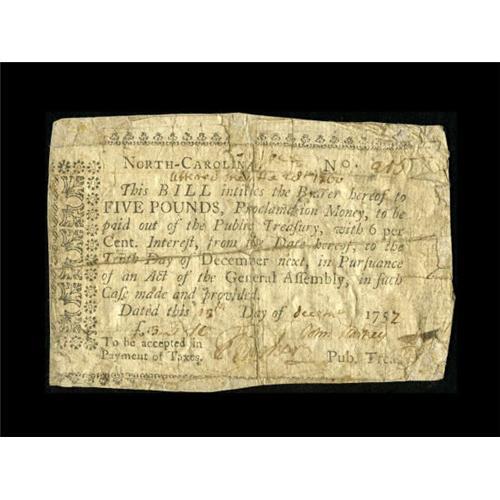 NORTH-CAROLINA, No. 215
This BILL intitles the Bearer hereof to
FIVE POUNDS, Proclamation Money, to be
paid out of the Public Treasury, with 6 per
Cent. Interest, from the Date hereof, to the
Tenth Day of December next, in Pursuance
of an Act of the General Assembly, in such
Case made and provided.
Dated this Day of 1757
To be accepted in
Payment of Taxes.
Pub. Treas